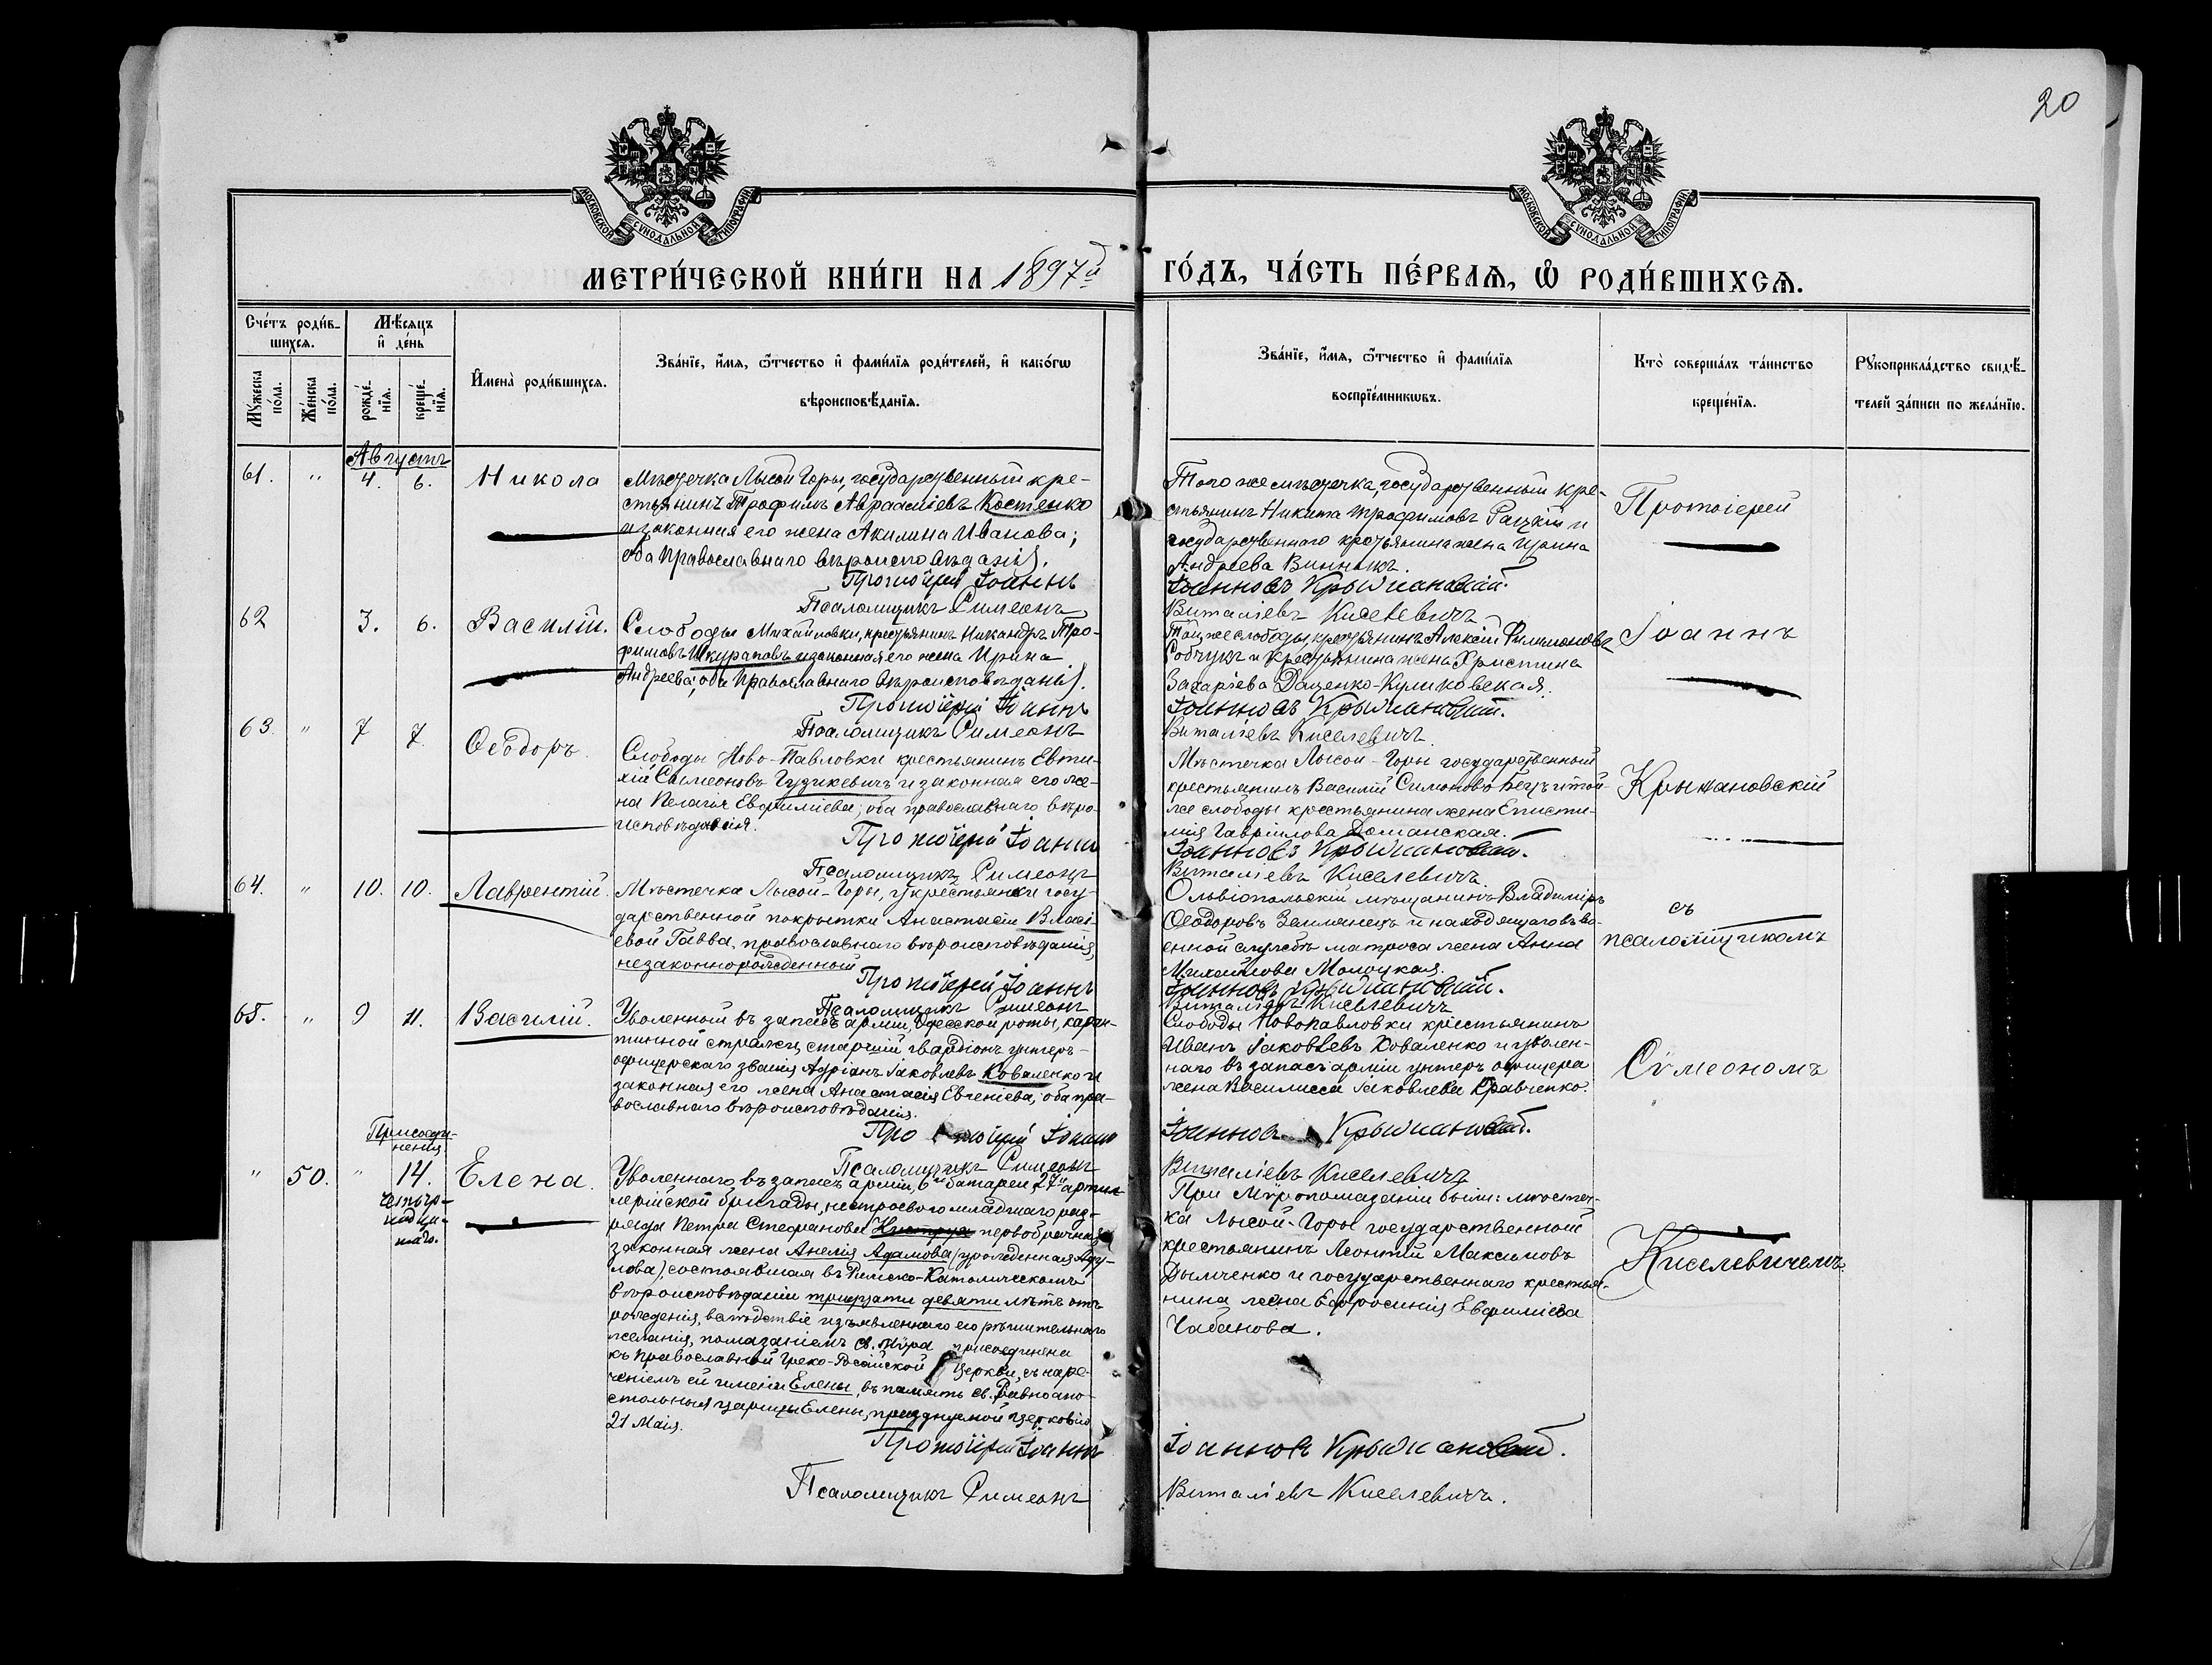 20
МОСКОВСКОЙ СУНОДАЛЬНОЙ ТИПОГРАФІИ
МОСКОВСКОЙ СУНОДАЛЬНОЙ ТИПОГРАФІИ
МЕТРИ́ЧЕСКОЙ КНИ́ГИ НА 1897й ГО́ДЪ, ЧА́СТЬ ПЕ́РВАѦ, Ѽ РОДИ́ВШИХСѦ.
Сче́тъ роди́в-
шихсѧ.
Мѣ́сяцъ
и҆ де́нь
Мꙋ́жеска
по́ла.
Же́нска
по́ла.
рожде́-
нїѧ.
креще́-
нїѧ.
И҆мена̀ роди́вшихсѧ.
Зва́нїе, и҆́мѧ, ѻ҆́тчество и҆ фами́лїѧ роди́телей, и҆ како́гѡ
вѣроисповѣ́данїѧ.
Зва́нїе, и҆́мѧ, ѻ҆́тчество и҆ фами́лїѧ
воспрїе́мникѡвъ.
Кто̀ соверша́лъ та́инство
креще́нїѧ.
Рꙋкоприкла́дство свидѣ́-
телей за́писи по жела́нїю.
Августъ
61. " 4. 6. Никола
Мѣстечка Лысой Горы, государственный кре-
стьянинъ Трофимъ Авраамiевъ Костенко
и законная его жена Акилина Иванова;
оба Православнаго вѣроисповѣданія.
Протоіерей Іоаннъ
Псаломщикъ Симеонъ
Того же мѣстечка, государственный кре-
стьянинъ Никита Трофимовъ Рацкій и
государственнаго крестьянина жена Ирина
Андреева Винникъ.
Іоанновъ Крыжановскій.
Виталіевъ Киселевичъ
Протоіерей
62 3. 6. Василій.
Слободы Михайловки, крестьянинъ Никандръ Тро-
фимовъ Шкураповъ и законная его жена Ирина
Андреева; оба Православнаго вѣроисповѣданія.
Протоіерей Іоаннъ
Псаломщикъ Симеонъ
Той же слободы, крестьянинъ Алексій Филимоновъ
Собчукъ и крестьянина жена Христина
Захаріева Даценко-Куликовская.
Іоанновъ Крыжановскій.
Виталіевъ Киселевичъ.
Іоаннъ
63. " 7 7. Ѳеодоръ.
Слободы Ново-Павловки крестьянинъ Евти-
хій Симеоновъ Гузикевичъ и законная его же-
на Пелагія Евфиміева; оба православнаго вѣро-
исповѣданія.
Протоіерей Іоаннъ
Псаломщикъ Симеонъ
Мѣстечка Лысой-Горы государственный
крестьянинъ Василій Симоновъ и той-
же слободы крестьянина жена Еписти-
мія Гавріилова Доманская.
Іоанновъ Крыжановскій.
Виталіевъ Киселевичъ
Крыжановскій
64. " 10. 10. Лаврентій.
Мѣстечка Лысой-Горы, у крестьянки госу-
дарственной покрытки Анастасіи Власі-
евой Гавва, православнаго вѣроисповѣданія,
незаконнорожденный
Протоіерей Іоаннъ
Псаломщикъ Симеонъ
Ольвіопольскій мѣщанинъ Владиміръ
Ѳеодоровъ Землянецъ и находящагося въ во-
енной службѣ матроса жена Анна
Михайлова Молоцкая.
Іоанновъ Крыжановскій.
Виталіевъ Киселевичъ
съ
псаломщикомъ
65. " 9 11. Василій.
Уволенный въ запасъ арміи, Одесской роты, каран-
тинной стражи, старшій гвардіонъ унтеръ-
офицерскаго званія Адріанъ Іаковлевъ Коваленко и
законная его жена Анастасія Евгеніева; оба пра-
вославнаго вѣроисповѣданія.
Протоіерей Іоаннъ
Псаломщикъ Симеонъ
Слободы Новопавловки крестьянинъ
Иванъ Іаковлевъ Коваленко и уволен-
наго въ запасъ арміи унтеръ офицера
жена Василисса Іаковлева Кравченко.
Іоанновъ Крыжановскій.
Виталіевъ Киселевичъ
Сѵмеономъ
Присоеди-
ненія
" 50. " 14. Елена.
Четыр-
надца-
таго.
Уволеннаго въ запасъ арміи, 6й батареи, 27й артил-
лерійской бригады, нестроевого младшаго раз-
ряда Петра Стефанова первобрачная
законная жена Анелія Адамова (урожденная
лова), состоявшая въ Римско-Католическомъ
вѣроисповѣданіи тридцати девяти лѣтъ отъ
рожденія, вслѣдствіе изъявленнаго ею рѣшительнаго
желанія, помазаніемъ св. Мѵра присоединена
къ Православной Греко-Россійской Церкви, съ наре-
ченіемъ ей имени Елены, въ память св. Равноапо-
стольныя царицы Елены, празднуемой Церковію
21 Маія.
Протоіерей Іоаннъ
Псаломщикъ Симеонъ
При Мѵропомазаніи были: мѣстеч-
ка Лысой-Горы государственный
крестьянинъ Леонтій Максимовъ
Дымченко и государственнаго крестья-
нина жена Евфросинія Евфиміева
Чабанова.
Іоанновъ Крыжановскій.
Виталіевъ Киселевичъ.
Киселевичемъ.